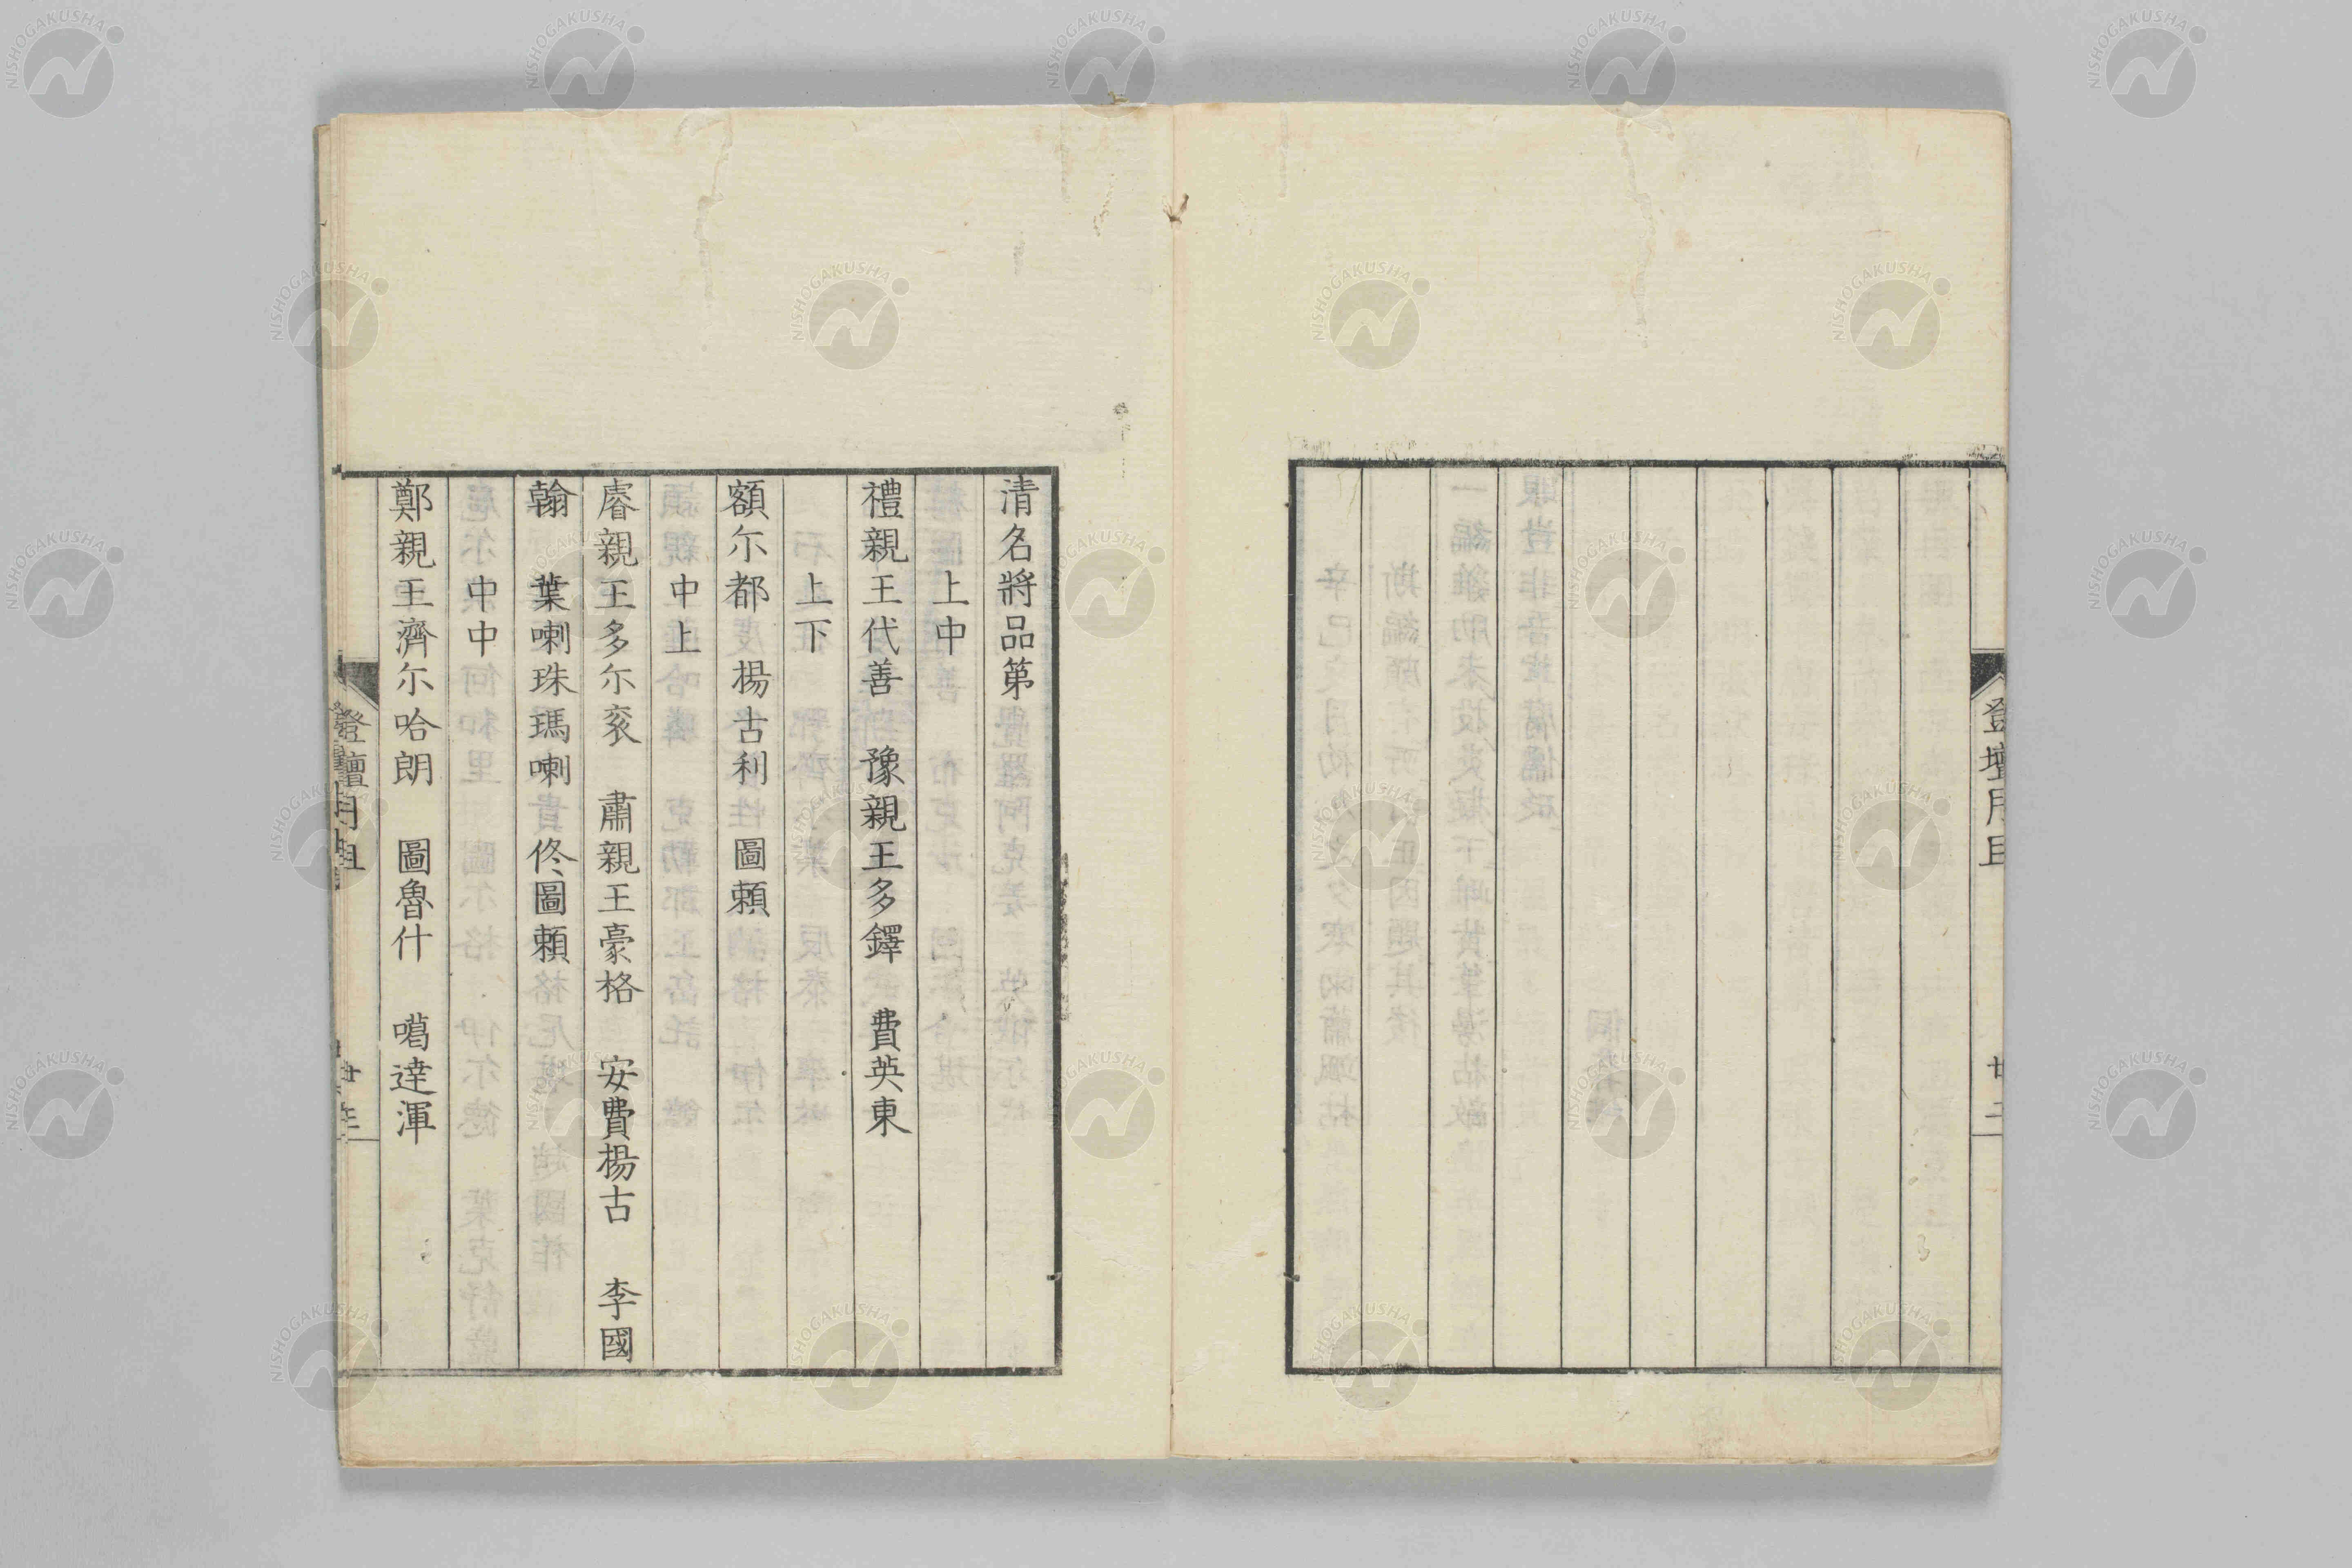 登壇月旦
廿二
清名將品第
上中
禮親王代善　豫親王多鐸　費英東
上下
額尓都　揚古利　圖頼
中上
睿親王多尓袞　肅親王豪格　安費揚古　李國
翰　葉喇珠瑪喇　佟圖頼
中中
鄭親王濟尓哈朗　圖魯什　噶達渾
登壇月旦
NISHOGAKUSHA